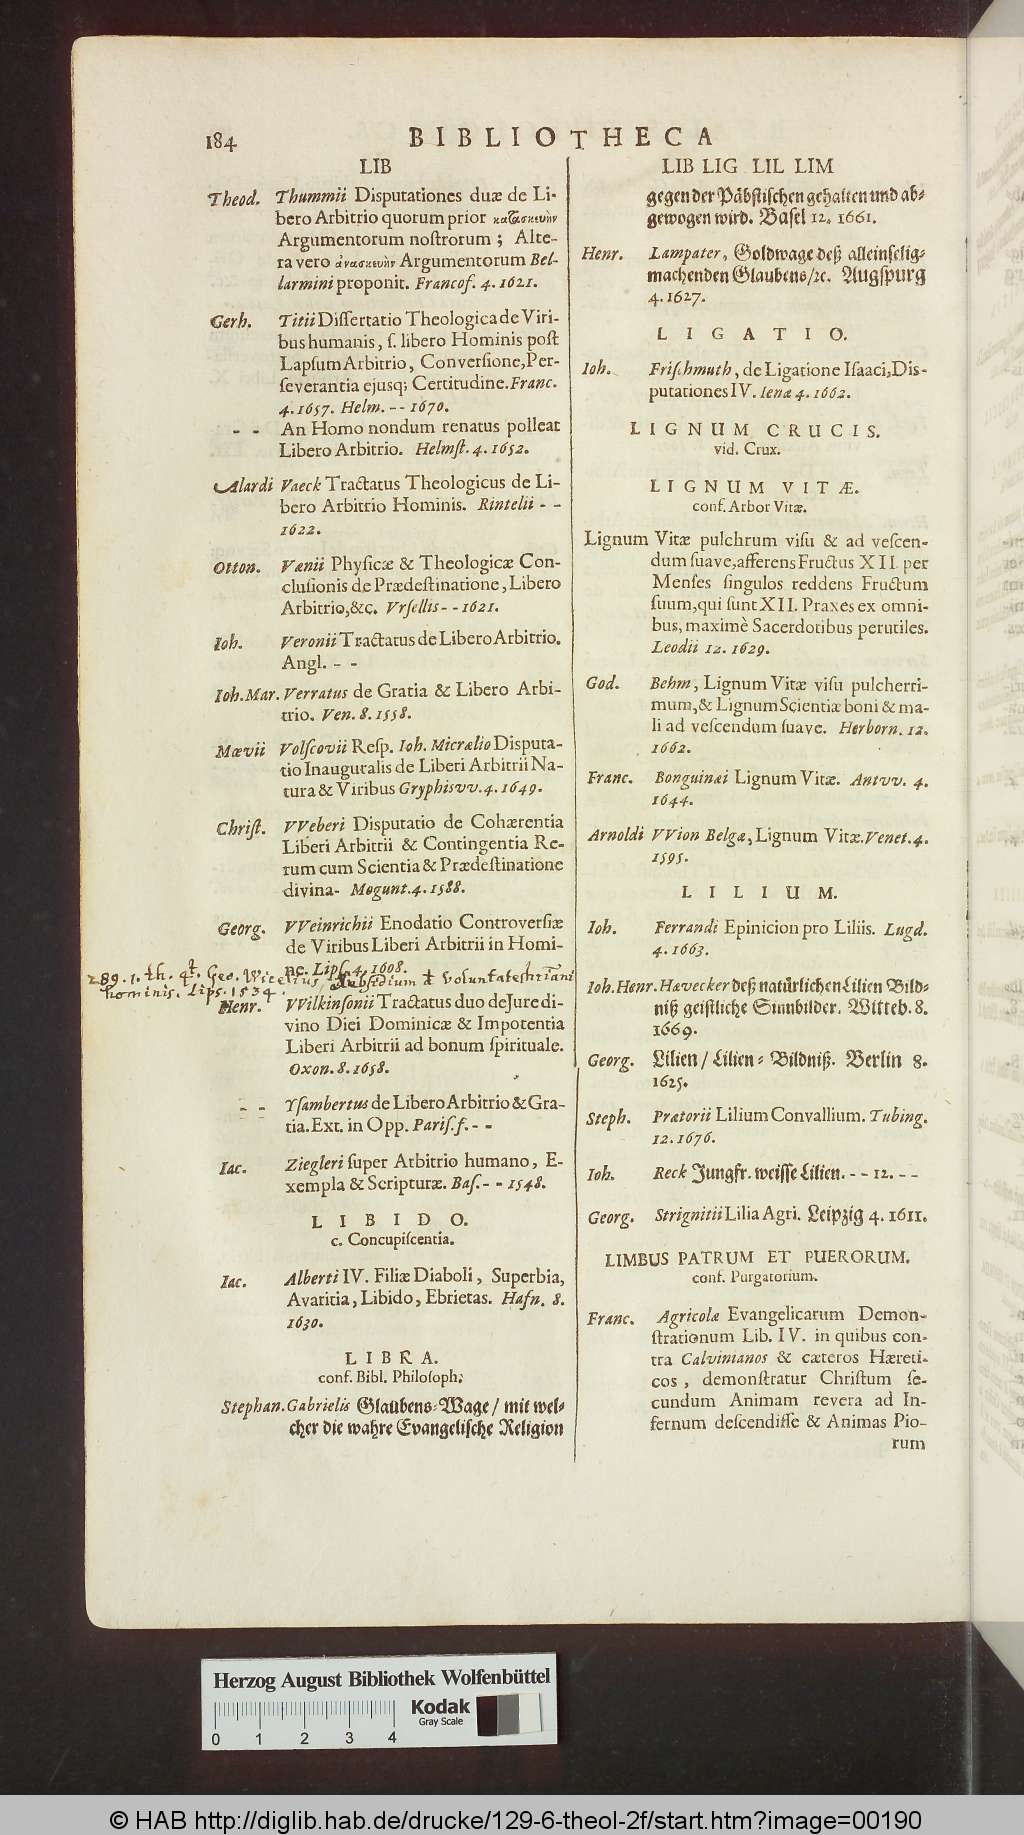 184
BIBLIOTHECA
LIB
Theod. Thummii Disputationes duæ de Li-
bero Arbitrio quorum prior κατασκευὴν
Argumentorum nostrorum ; Alte-
ra vero ἀνασκευὴν Argumentorum Bel-
larmini proponit. Francof. 4. 1621.
Gerh. Titii Dissertatio Theologica de Viri-
bus humanis, s. libero Hominis post
Lapsum Arbitrio, Conversione, Per-
severantia ejusq; Certitudine. Franc.
4. 1657. Helm. -- 1670.
- - An Homo nondum renatus polleat
Libero Arbitrio. Helmst. 4. 1652.
Alardi Vaeck Tractatus Theologicus de Li-
bero Arbitrio Hominis. Rintelii - -
1622.
Otton. Vænii Physicæ & Theologicæ Con-
clusionis de Prædestinatione, Libero
Arbitrio, &c. Vrsellis - - 1621.
Ioh. Veronii Tractatus de Libero Arbitrio.
Angl. - -
Ioh. Mar. Verratus de Gratia & Libero Arbi-
trio. Ven. 8. 1558.
Mævii Volscovii Resp. Ioh. Micrælio Disputa-
tio Inauguralis de Liberi Arbitrii Na-
tura & Viribus Gryphisvv. 4. 1649.
Christ. VVeberi Disputatio de Cohærentia
Liberi Arbitrii & Contingentia Re-
rum cum Scientia & Prædestinatione
divina- Mogunt. 4. 1588.
Georg. VVeinrichii Enodatio Controversiæ
de Viribus Liberi Arbitrii in Homi-
ne. Lips. 4. 1608.
289. 1. th. 4t. Geo. Wicelius, Subsidium voluntate
hominis. Lips. 1534.
Henr. VVilkinsonii Tractatus duo de Jure di-
vino Diei Dominicæ & Impotentia
Liberi Arbitrii ad bonum spirituale.
Oxon. 8. 1658.
- - Ysambertus de Libero Arbitrio & Gra-
tia. Ext. in Opp. Paris. f. - -
Iac. Ziegleri super Arbitrio humano, E-
xempla & Scripturæ. Bas. - - 1548.
LIBIDO.
c. Concupiscentia.
Iac. Alberti IV. Filiæ Diaboli, Superbia,
Avaritia, Libido, Ebrietas. Hafn. 8.
1630.
LIBRA.
conf. Bibl. Philosoph;
Stephan. Gabrielis Glaubens-Wage / mit wel-
cher die wahre Evangelische Religion
LIB LIG LIL LIM
gegen der Päbstischen gehalten und ab-
gewogen wird. Basel 12. 1661.
Henr. Lampater, Goldwage deß alleinselig-
machenden Glaubens/ꝛc. Augspurg
4. 1627.
LIGATIO.
Ioh. Frischmuth, de Ligatione Isaaci, Dis-
putationes IV. Ienæ 4. 1662.
LIGNUM CRUCIS.
vid. Crux.
LIGNUM VITÆ.
conf. Arbor Vitæ.
Lignum Vitæ pulchrum visu & ad vescen-
dum suave, afferens Fructus XII. per
Menses singulos reddens Fructum
suum, qui sunt XII. Praxes ex omni-
bus, maximè Sacerdotibus perutiles.
Leodii 12. 1629.
God. Behm, Lignum Vitæ visu pulcherri-
mum, & Lignum Scientiæ boni & ma-
li ad vescendum suave. Herborn. 12.
1662.
Franc. Bonguinai Lignum Vitæ. Antvv. 4.
1644.
Arnoldi VVion Belgæ, Lignum Vitæ. Venet. 4.
1595.
LILIUM.
Ioh. Ferrandi Epinicion pro Liliis. Lugd.
4. 1663.
Ioh. Henr. Hævecker deß natürlichen Lilien Bild-
niß geistliche Sinnbilder. Witteb. 8.
1669.
Georg. Lilien / Lilien- Bildniß. Berlin 8.
1625.
Steph. Prætorii Lilium Convallium. Tubing.
12. 1676.
Ioh. Reck Jungfr. weisse Lilien. - - 12. - -
Georg. Strignitii Lilia Agri. Leipzig 4. 1611.
LIMBUS PATRUM ET PUERORUM.
conf. Purgatorium.
Franc. Agricolæ Evangelicarum Demon-
strationum Lib. IV. in quibus con-
tra Calvinianos & cæteros Hæreti-
cos, demonstratur Christum se-
cundum Animam revera ad In-
fernum descendisse & Animas Pio-
rum
Herzog August Bibliothek Wolfenbüttel
0 1 2 3 4
Kodak
Gray Scale
© HAB http://diglib.hab.de/drucke/129-6-theol-2f/start.htm?image=00190